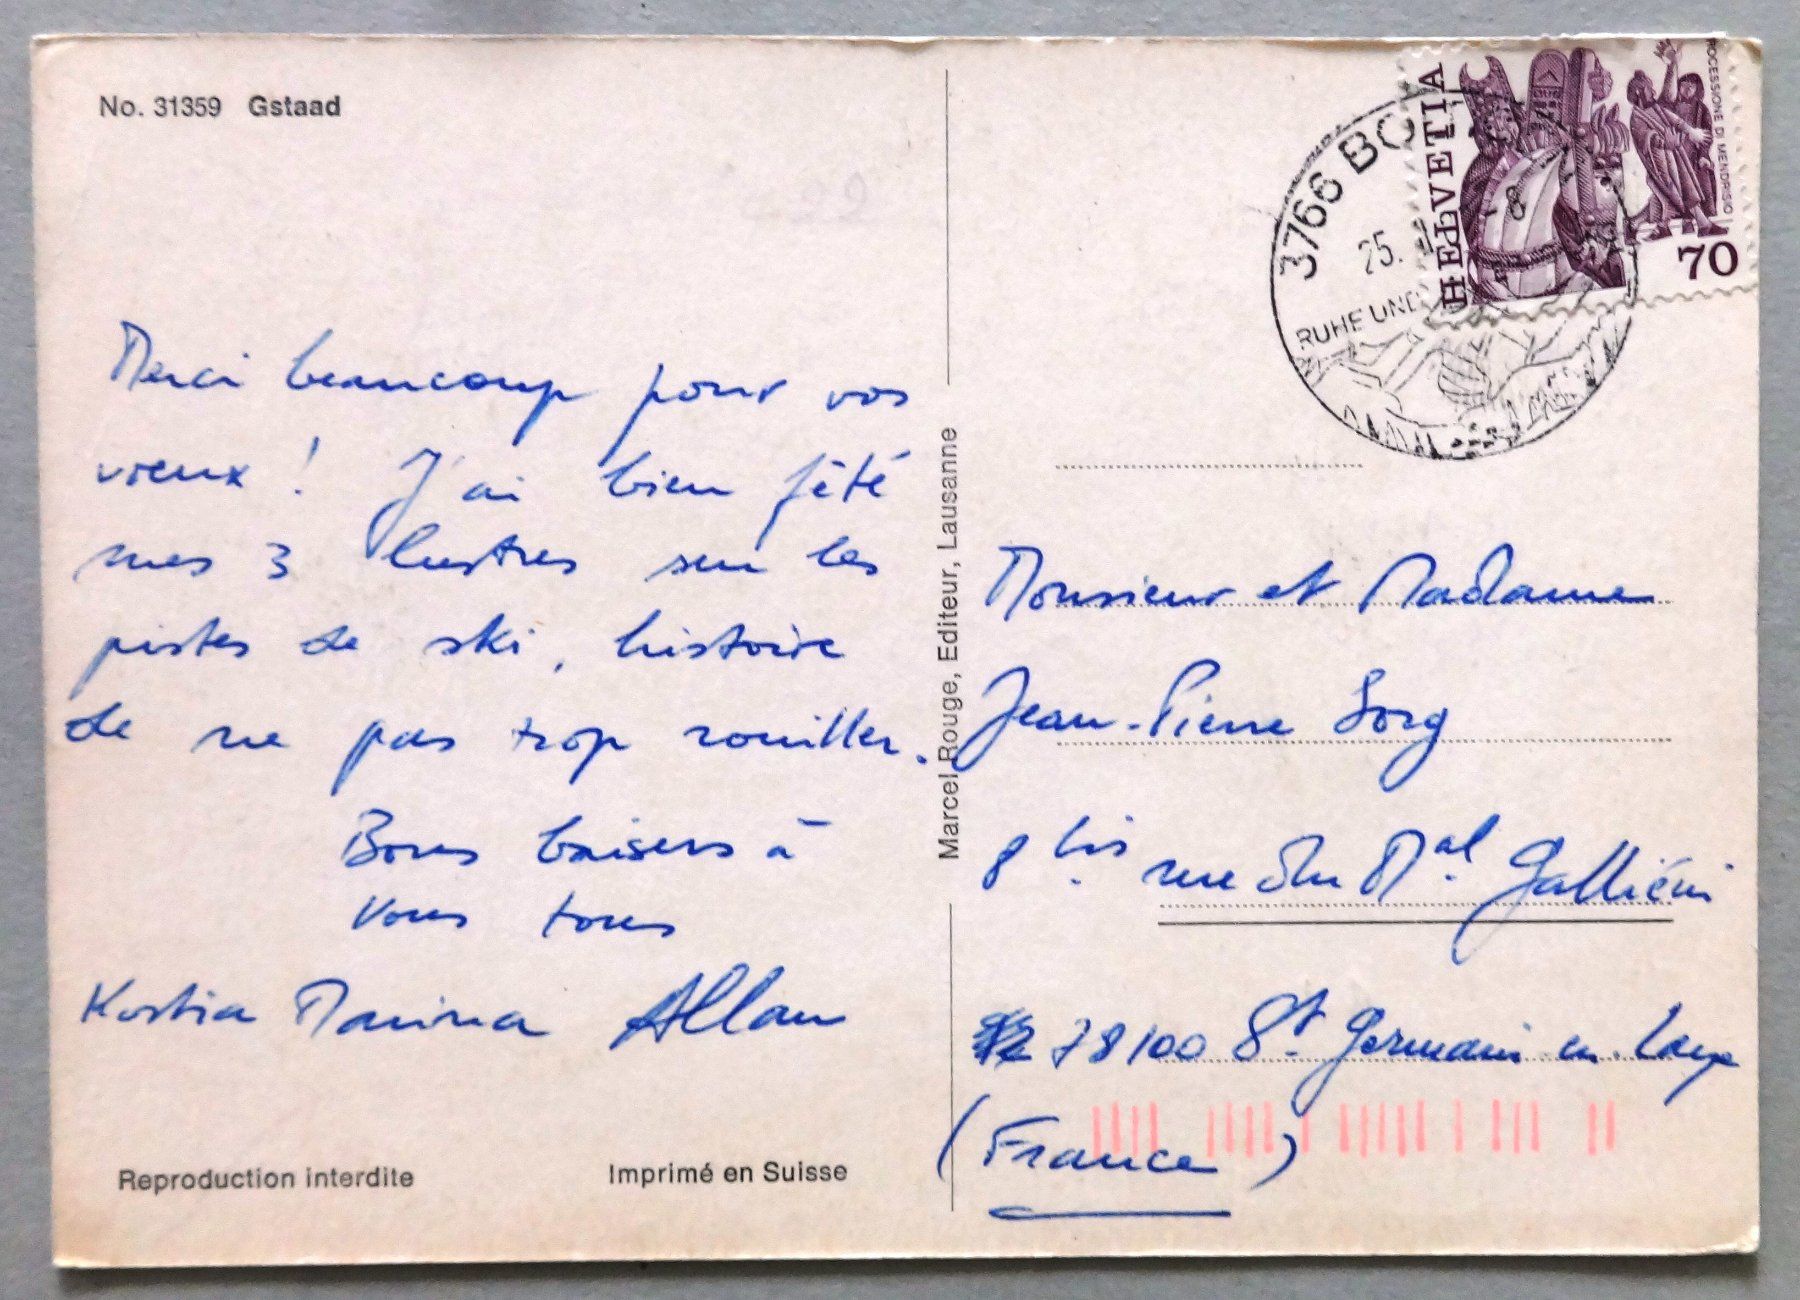 No. 31359 Gstaad
Merci beaucoup pour vos
vœux ! J'ai bien fêté
mes 3 lustres sur les
pistes de ski, histoire
de ne pas trop rouiller.
Bons baisers à
vous tous
Kostia Marina Allan
Reproduction interdite
Imprimé en Suisse
Marcel Rouge, Editeur, Lausanne
HELVETIA
PROCESSIONE DI MENDRISIO
70
3766 BO
25.
RUHE UND
Monsieur et Madame
Jean-Pierre Sorg
8 bis rue du Mal Galliéni
78100 St Germain en Laye
(France)